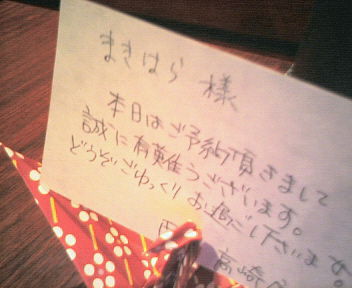 まきはら 様
本日はご予約頂きまして
誠に有難うございます。
どうぞごゆっくりお過ごし下さいませ。
高崎